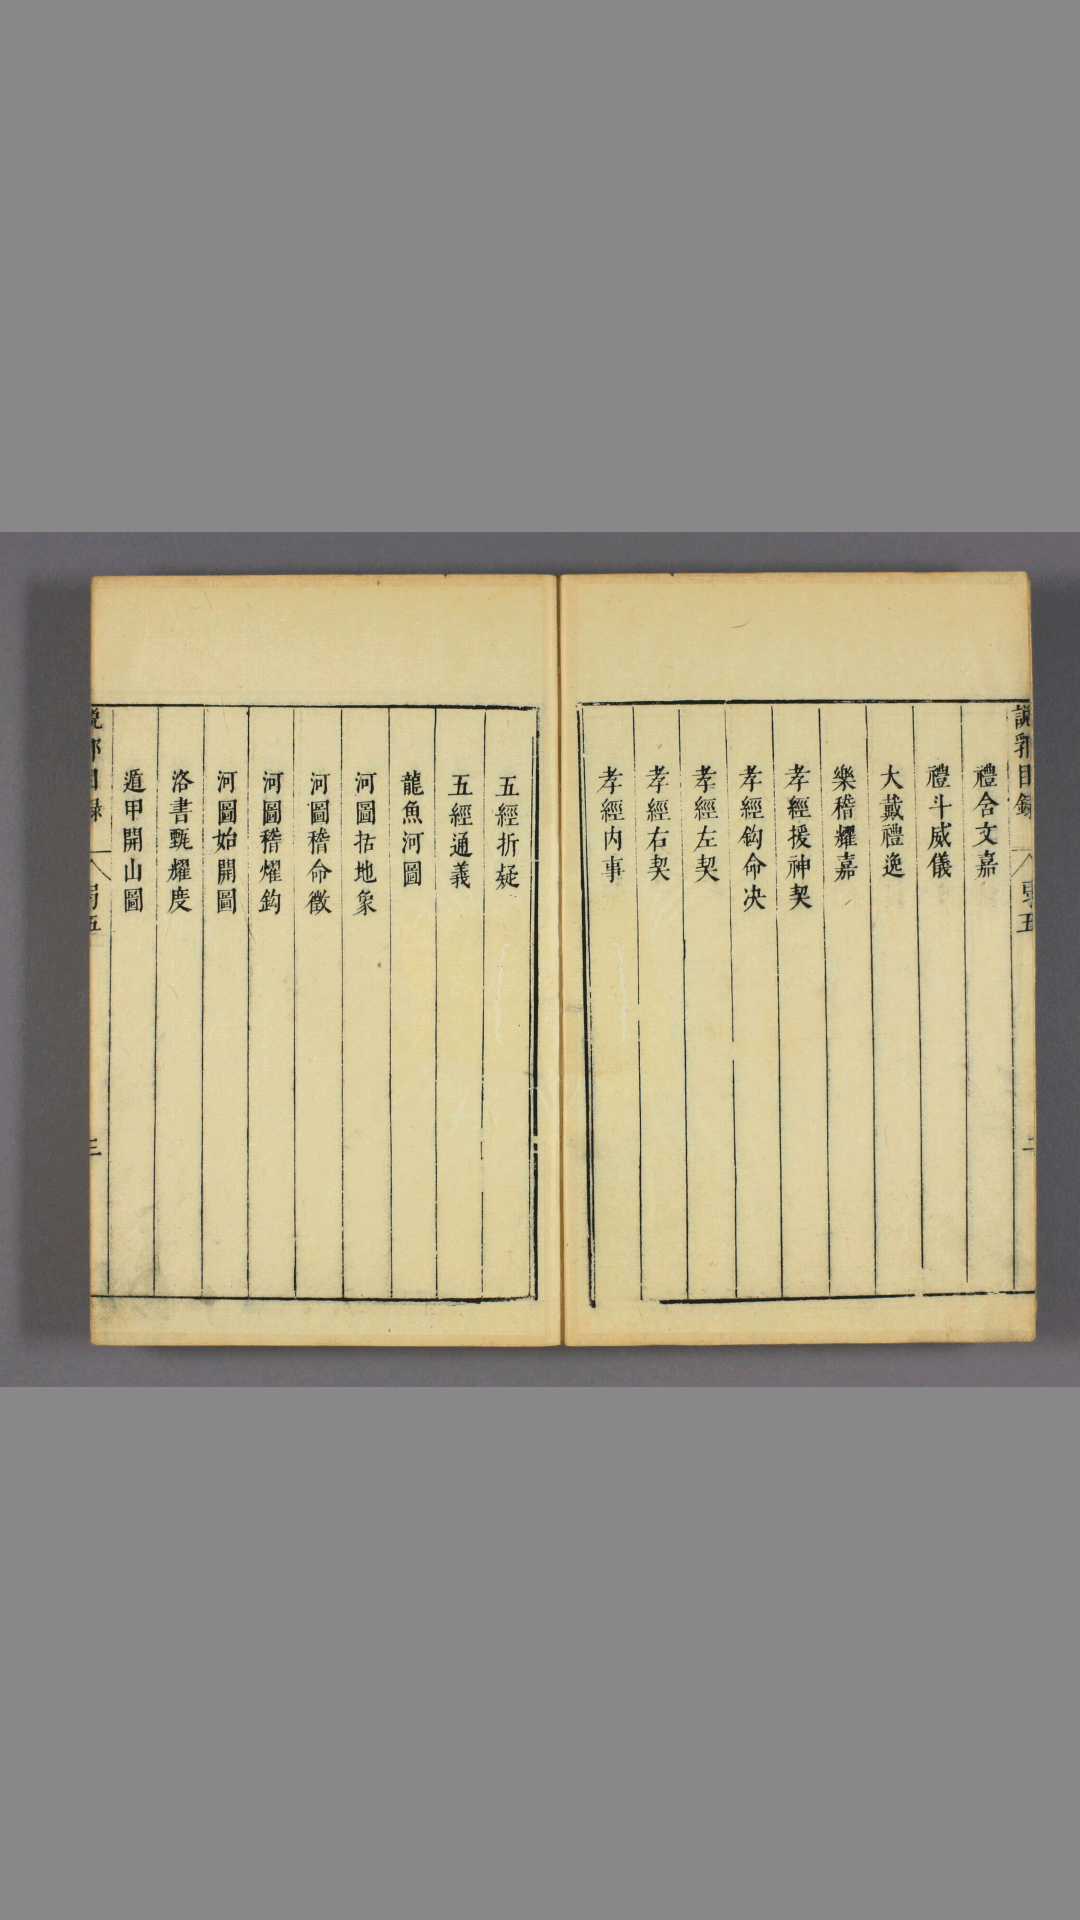 說郛目錄
禮含文嘉
禮斗威儀
大戴禮逸
樂稽耀嘉
孝經援神契
孝經鈎命决
孝經左契
孝經右契
孝經内事
五經折疑
五經通義
龍魚河圖
河圖括地象
河圖稽命徵
河圖稽燿鈎
河圖始開圖
洛書甄耀度
遁甲開山圖
三